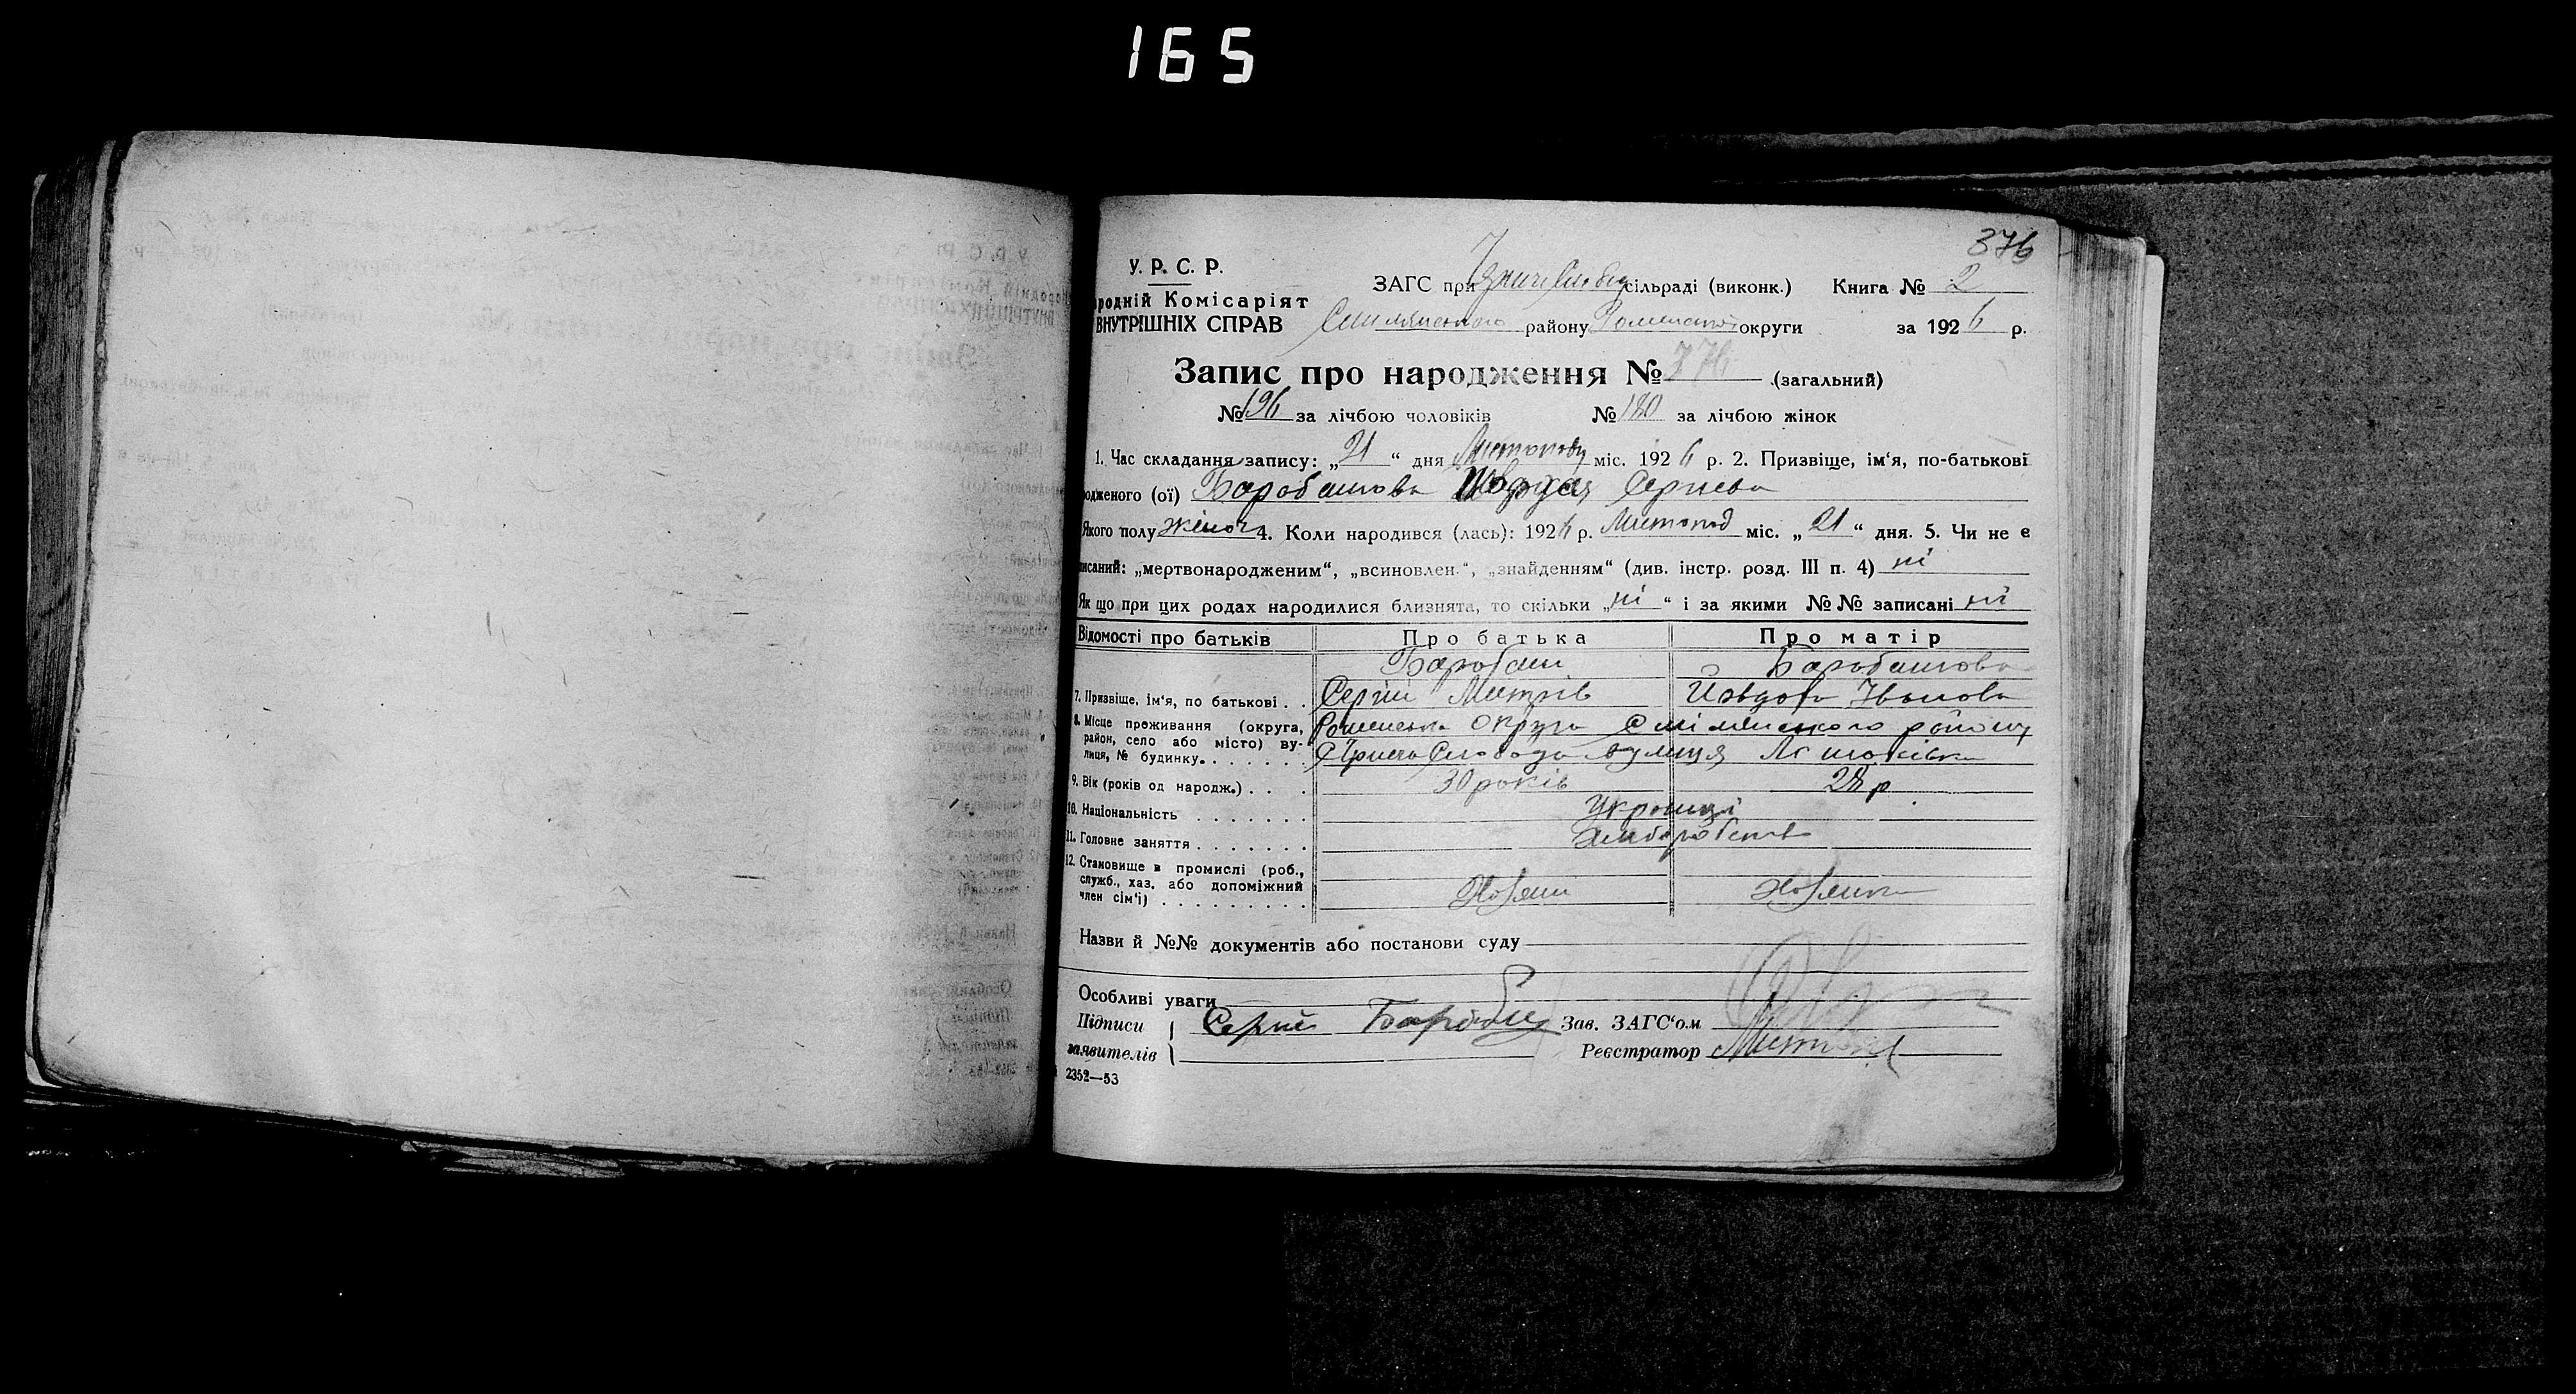 165
376
У. Р. С. Р.
родній Комісаріят
ВНУТРІШНІХ СПРАВ
ЗАГС при сільраді (виконк.) Книга № 2
району Роменської округи за 1926 р.
Запис про народження № 376 (загальний)
№ 196 за лічбою чоловіків № 180 за лічбою жінок
1. Час складання запису: „21“ дня Листопаду міс. 1926 р. 2. Призвіще, ім‘я, по-батькові
одженого (ої) Барабашова Сергіева
Якого полу жіноч 4. Коли народився (лась): 1926 р. Листопад міс. „21“ дня. 5. Чи не є
писаний: „мертвонародженим“, „всиновлен.“, „знайденням“ (див. інстр. розд. III п. 4) ні
Як що при цих родах народилися близнята, то скільки „ні“ і за якими №№ записані ні
Відомості про батьків Про батька Про матір
Барабаш Барабашова
7. Призвіще, ім‘я, по батькові . . Сергій Митрів Йовдоха Іванова
8. Місце проживання (округа, район, село або місто) ву- лиця, № будинку. Роменська округа Смілянського району
Слобода вулиця
9. Вік (років од народж.) . . . 30 років 28 р
10. Національність . . . . . . . Українці
11. Головне заняття . . . . . . . Хліборобств
12. Становище в промислі (роб., служб., хаз. або допоміжний член сім‘ї) . . . . . . . . . . Хозяин Хозяика
Назви й №№ документів або постанови суду
Особливі уваги
Підписи Сергій Барабаш Зав. ЗАГС‘ом
заявителів Реєстратор
2352—53